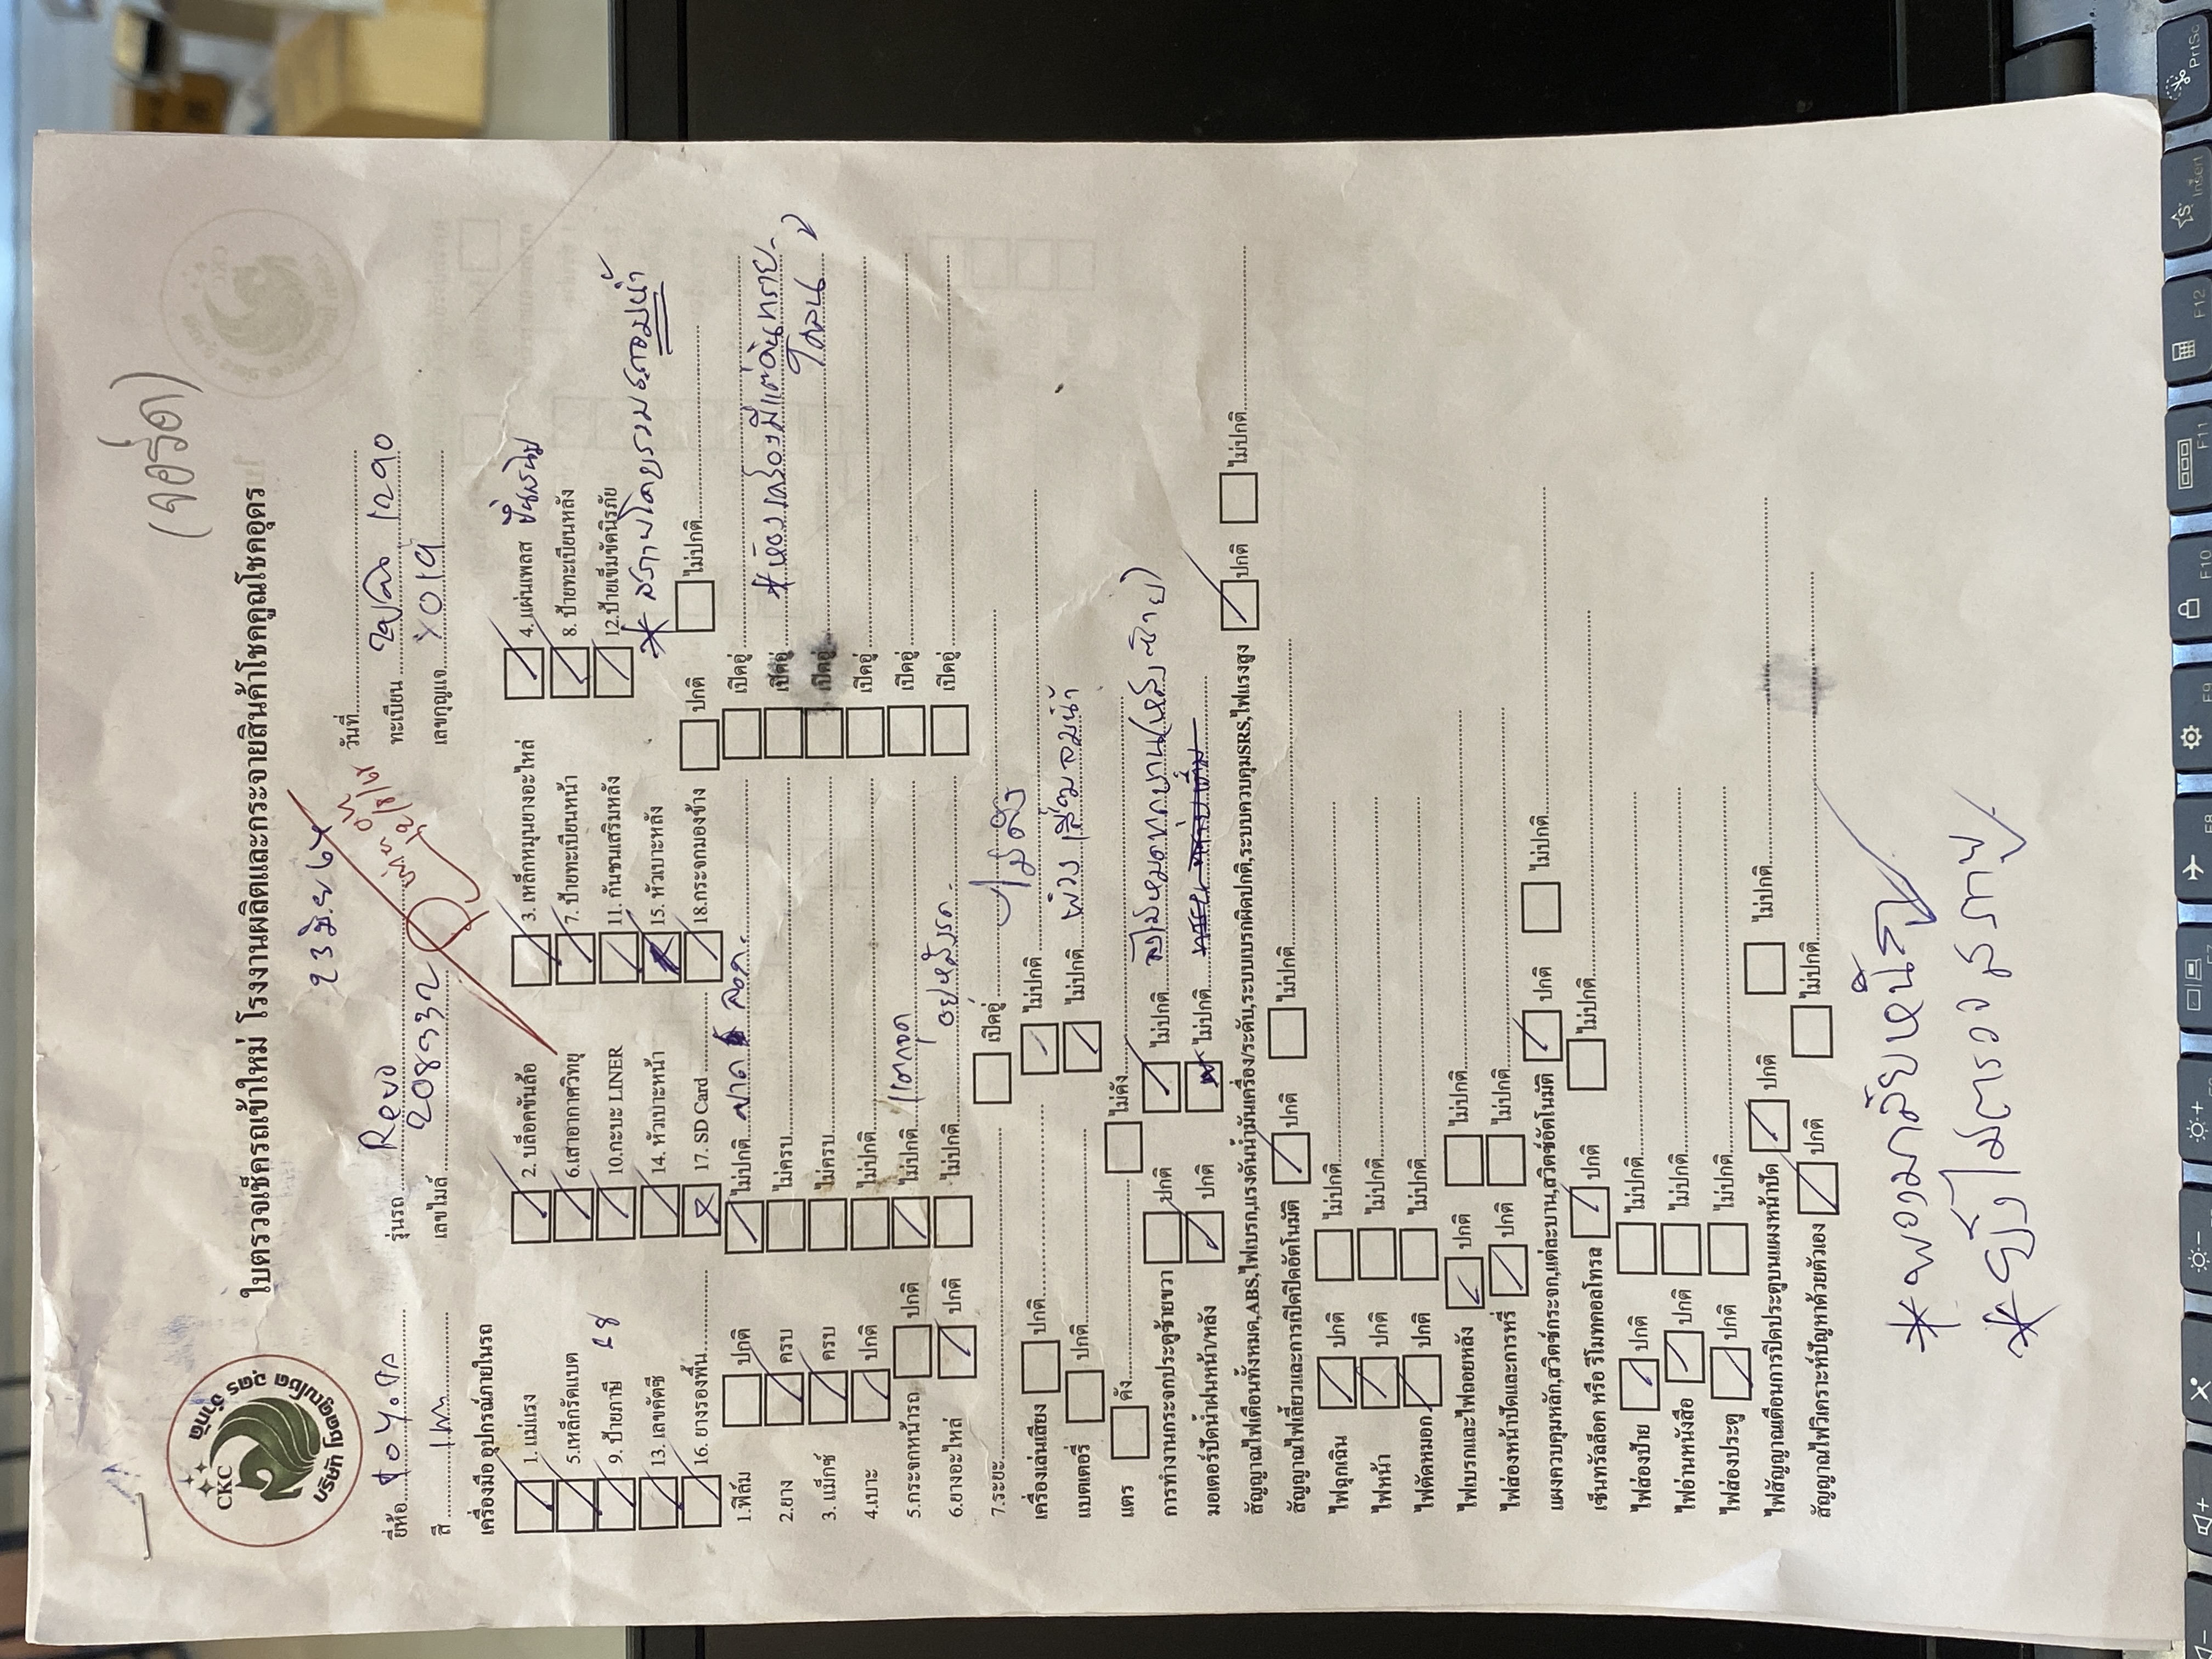 (จอร์ด)
CKC
บริษัท โชคคูณโชค อุดร จำกัด
ใบตรวจเช็ครถเข้าใหม่ โรงงานผลิตและกระจายสินค้าโชคคูณโชคอุดร
23 มิ.ย 64 วันที่
ยี่ห้อ ToYoTa รุ่นรถ Revo ทะเบียน 1290
สี เทา เลขไมล์ 208932 เลขกุญแจ X019
เครื่องมือ อุปกรณ์ภายในรถ
1. แม่แรง 2. บล็อคขันล้อ 3. เหล็กหมุนยางอะไหล่ 4. แผ่นเพลส
5.เหล็กรัดแบต 6.เสาอากาศวิทยุ 7. ป้ายทะเบียนหน้า 8. ป้ายทะเบียนหลัง
9. ป้ายภาษี 28 10.กะบะ LINER 11. กันชนเสริมหลัง 12.ป้ายเข็มขัดนิรภัย
13. เลขคัตซี 14. หัวเบาะหน้า 15. หัวเบาะหลัง * สภาพโดยรวม รถจมน้ำ
16. ยางรองพื้น 17. SD Card 18.กระจกมองข้าง ปกติ ไม่ปกติ
1.ฟิล์ม ปกติ ไม่ปกติ ขาด ลอก. เปิดอู่
2.ยาง ครบ ไม่ครบ เปิดอู่ *ห้องเครื่องมีแต่ดินทราย
3. แม็กซ์ ครบ ไม่ครบ เปิดอู่ โคลน
4.เบาะ ปกติ ไม่ปกติ เปิดอู่
5.กระจกหน้ารถ ปกติ ไม่ปกติ แตกจุด เปิดอู่
6.ยางอะไหล่ ปกติ ไม่ปกติ อยู่หลังรถ. เปิดอู่
7.ระยะ เปิดอู่
เครื่องเล่นเสียง ปกติ ไม่ปกติ ไม่ดัง
แบตเตอรี่ ปกติ ไม่ปกติ พ่วง เสื่อม จมน้ำ
แตร ดัง ไม่ดัง
การทำงานกระจกประตูซ้ายขวา ปกติ ไม่ปกติ
มอเตอร์ปัดน้ำฝนหน้า/หลัง ปกติ ไม่ปกติ
สัญญาณไฟเตือนทั้งหมด,ABS,ไฟเบรก,แรงดันน้ำมันเครื่อง/ระดับ,ระบบเบรกผิดปกติ,ระบบควบคุมSRS,ไฟแรงสูง ปกติ ไม่ปกติ
สัญญาณไฟเลี้ยวและการเปิดปิดอัตโนมัติ ปกติ ไม่ปกติ
ไฟฉุกเฉิน ปกติ ไม่ปกติ
ไฟหน้า ปกติ ไม่ปกติ
ไฟตัดหมอก ปกติ ไม่ปกติ
ไฟเบรกและไฟถอยหลัง ปกติ ไม่ปกติ
ไฟส่องหน้าปัดและการหรี่ ปกติ ไม่ปกติ
แผงควบคุมหลัก,สวิตซ์กระจก,แต่ละบาน,สวิตซ์อัตโนมัติ ปกติ ไม่ปกติ
เซ็นทรัลล็อค หรือ รีโมทคอลโทรล ปกติ ไม่ปกติ
ไฟส่องป้าย ปกติ ไม่ปกติ
ไฟอ่านหนังสือ ปกติ ไม่ปกติ
ไฟส่องประตู ปกติ ไม่ปกติ
ไฟสัญญาณเตือนการปิดประตูบนแผงหน้าปัด ปกติ ไม่ปกติ
สัญญาณไฟวิเคราะห์ปัญหาด้วยตัวเอง ปกติ ไม่ปกติ
*พวงมาลัยหนัก
*ยังไม่ตรวจสภาพ
PrtSc
Insert
F12
F11
F10
F9
F8